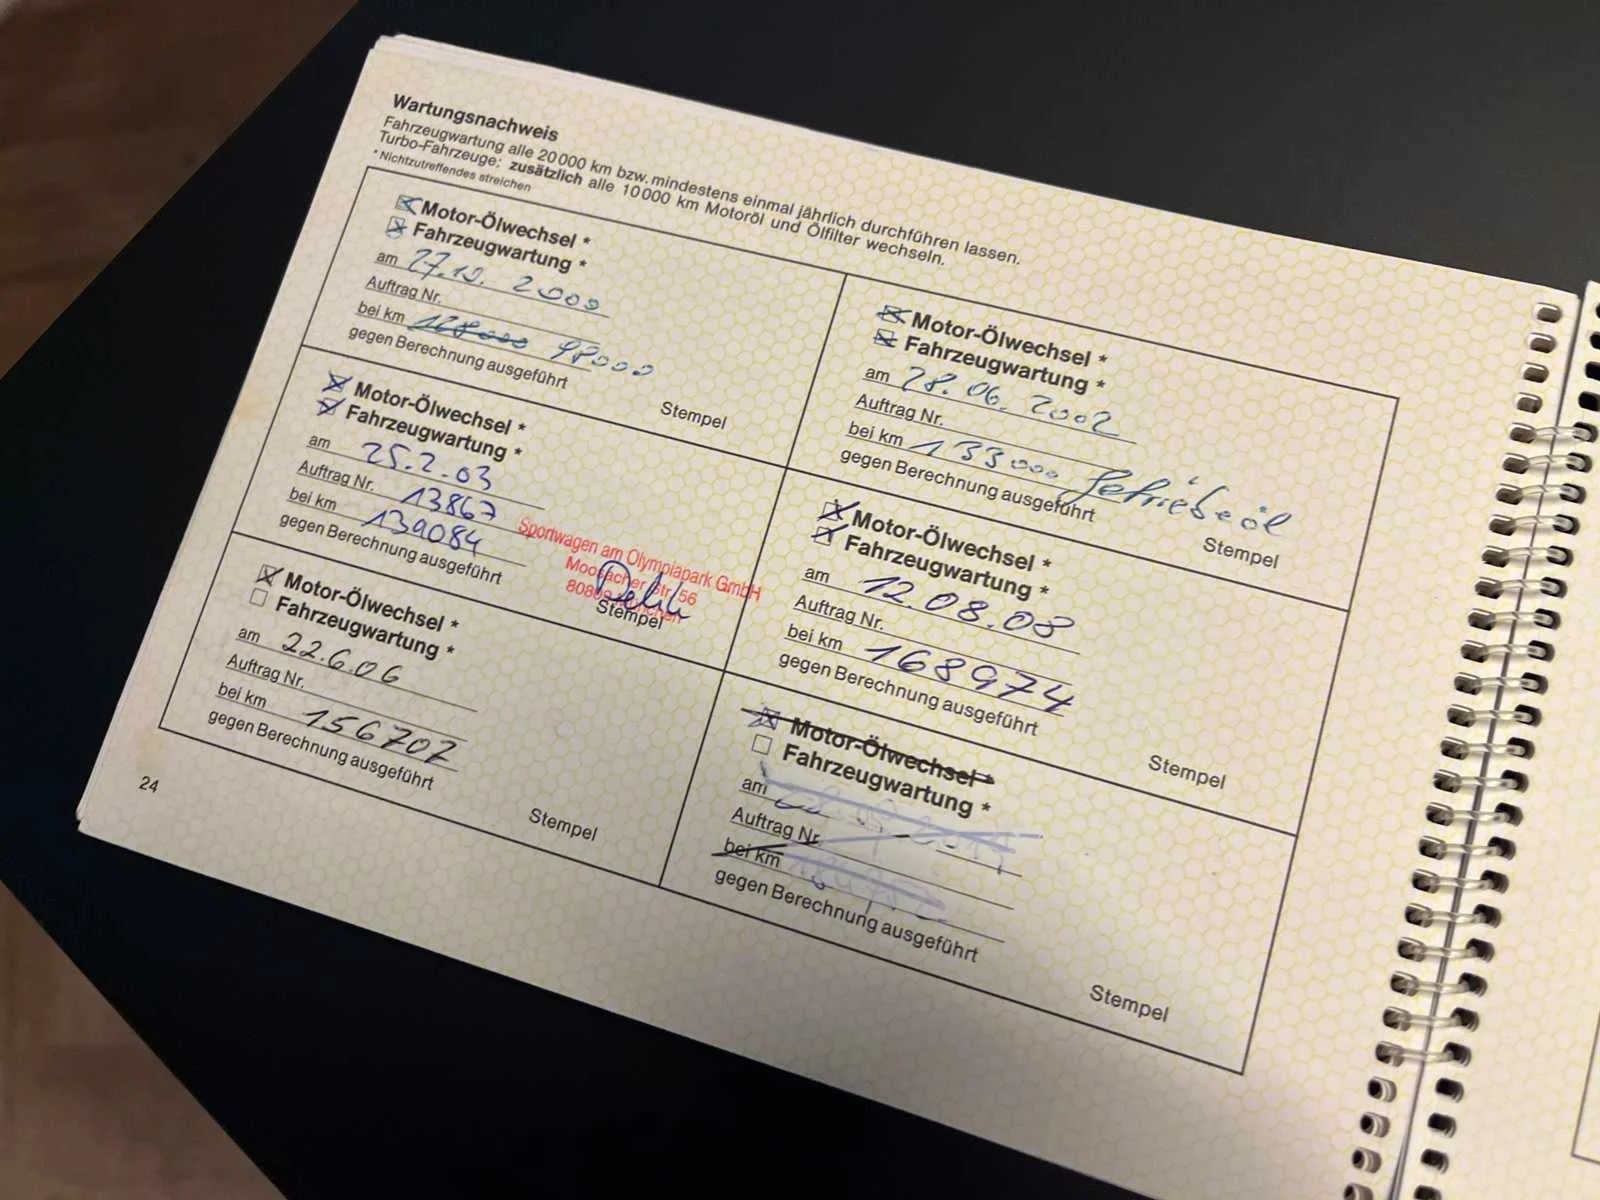 Wartungsnachweis
Fahrzeugwartung alle 20000 km bzw. mindestens einmal jährlich durchführen lassen.
Turbo-Fahrzeuge: zusätzlich alle 10000 km Motoröl und Ölfilter wechseln.
* Nichtzutreffendes streichen
Motor-Ölwechsel *
Fahrzeugwartung *
am 27.10. 2000
Auftrag Nr.
bei km 128000 98000
gegen Berechnung ausgeführt
Stempel
Motor-Ölwechsel *
Fahrzeugwartung *
am 28.06. 2002
Auftrag Nr.
bei km 133000 Getriebeöl
gegen Berechnung ausgeführt
Stempel
Motor-Ölwechsel *
Fahrzeugwartung *
am 25.2.03
Auftrag Nr. 13867
bei km 139084
gegen Berechnung ausgeführt
Sportwagen am Olympiapark GmbH
Moosacher Str. 56
80809 München
Stempel
Motor-Ölwechsel *
Fahrzeugwartung *
am 12.08.08
Auftrag Nr.
bei km 168974
gegen Berechnung ausgeführt
Stempel
Motor-Ölwechsel *
Fahrzeugwartung *
am 22.6.06
Auftrag Nr.
bei km 156702
gegen Berechnung ausgeführt
Stempel
Motor-Ölwechsel *
Fahrzeugwartung *
am
Auftrag Nr.
bei km
gegen Berechnung ausgeführt
Stempel
24